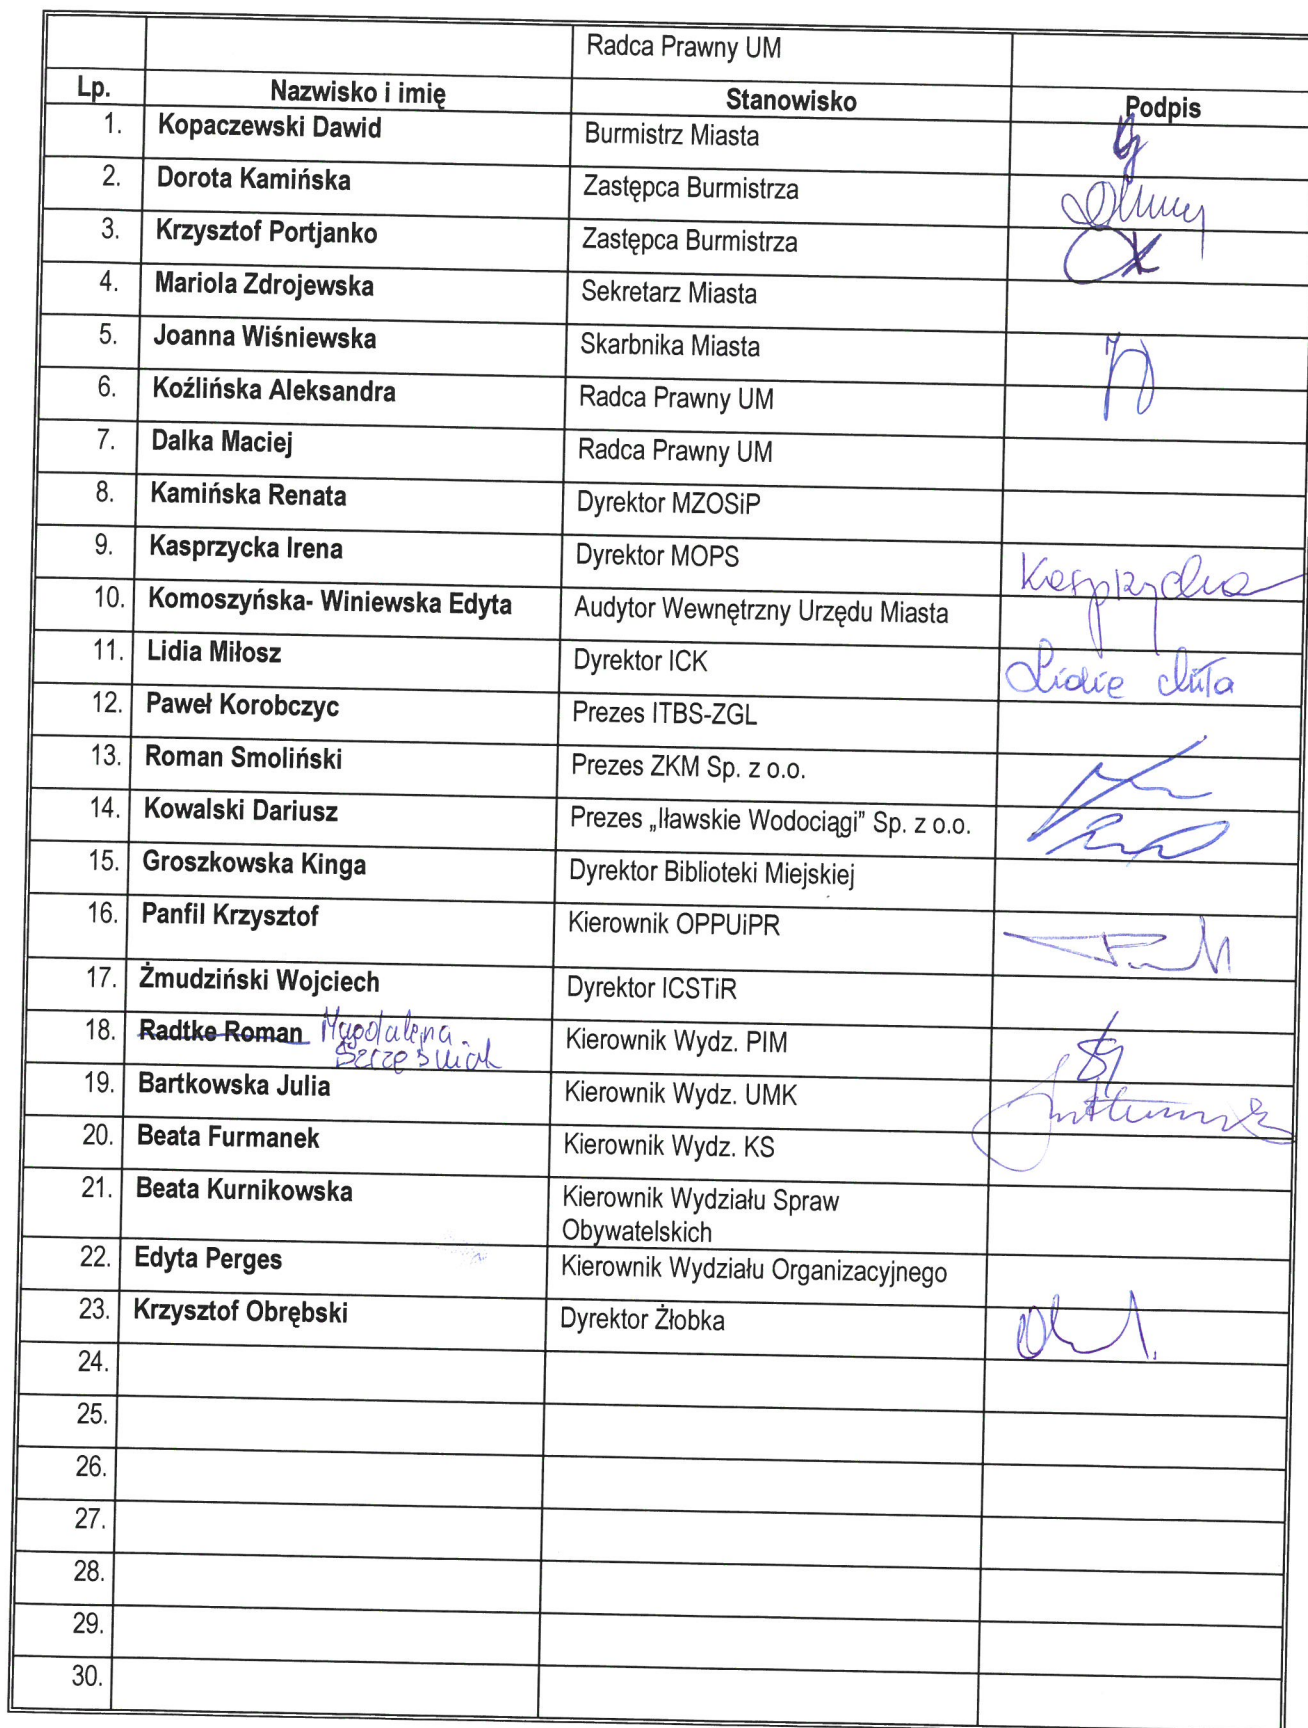 Radca Prawny UM
Lp. Nazwisko i imię Stanowisko Podpis
1. Kopaczewski Dawid Burmistrz Miasta
2. Dorota Kamińska Zastępca Burmistrza
3. Krzysztof Portjanko Zastępca Burmistrza
4. Mariola Zdrojewska Sekretarz Miasta
5. Joanna Wiśniewska Skarbnika Miasta
6. Koźlińska Aleksandra Radca Prawny UM
7. Dalka Maciej Radca Prawny UM
8. Kamińska Renata Dyrektor MZOSiP
9. Kasprzycka Irena Dyrektor MOPS Kasprzycka
10. Komoszyńska- Winiewska Edyta Audytor Wewnętrzny Urzędu Miasta
11. Lidia Miłosz Dyrektor ICK
12. Paweł Korobczyc Prezes ITBS-ZGL
13. Roman Smoliński Prezes ZKM Sp. z o.o.
14. Kowalski Dariusz Prezes „Iławskie Wodociągi” Sp. z o.o.
15. Groszkowska Kinga Dyrektor Biblioteki Miejskiej
16. Panfil Krzysztof Kierownik OPPUiPR
17. Żmudziński Wojciech Dyrektor ICSTiR
18. Radtke Roman Magdalena Kierownik Wydz. PIM
Szcześniak
19. Bartkowska Julia Kierownik Wydz. UMK
20. Beata Furmanek Kierownik Wydz. KS
21. Beata Kurnikowska Kierownik Wydziału Spraw
Obywatelskich
22. Edyta Perges Kierownik Wydziału Organizacyjnego
23. Krzysztof Obrębski Dyrektor Żłobka
24.
25.
26.
27.
28.
29.
30.